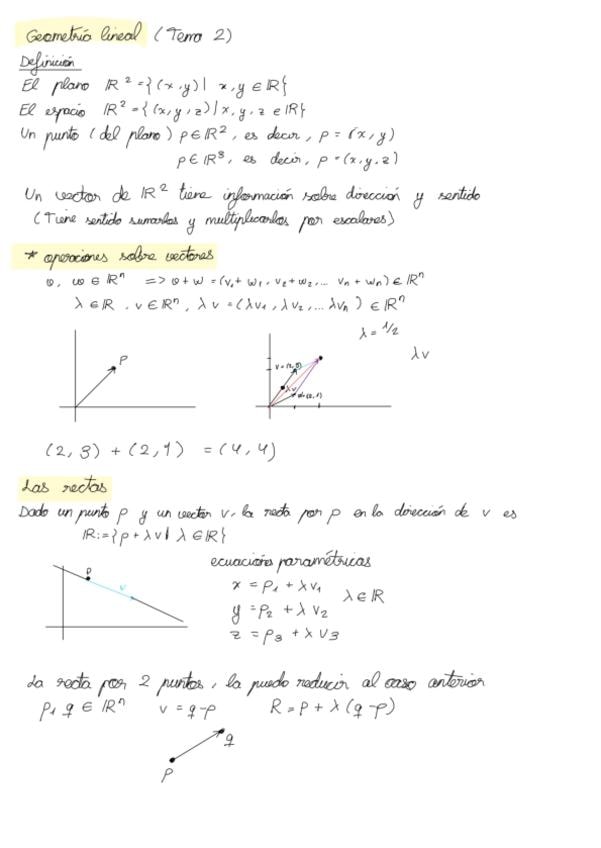 Geometría lineal (Tema 2)
Definición
El plano ℝ² = {(x,y) | x,y ∈ ℝ}
El espacio ℝ² = {(x,y,z) | x,y,z ∈ ℝ}
Un punto (del plano) p ∈ ℝ², es decir, p = (x,y)
p ∈ ℝ³, es decir, p = (x,y,z)
Un vector de ℝ² tiene información sobre dirección y sentido
(Tiene sentido sumarlos y multiplicarlos por escalares)
* operaciones sobre vectores
v, w ∈ ℝⁿ => v + w = (v₁ + w₁, v₂ + w₂, ... vₙ + wₙ) ∈ ℝⁿ
λ ∈ ℝ, v ∈ ℝⁿ, λv = (λv₁, λv₂, ... λvₙ) ∈ ℝⁿ
λ = 1/2
λv
P
v = (2,3)
λv
w = (2,1)
(2,3) + (2,1) = (4,4)
Las rectas
Dado un punto p y un vector v, la recta por p en la dirección de v es
ℝ := {p + λv | λ ∈ ℝ}
ecuaciones paramétricas
x = p₁ + λv₁
y = p₂ + λv₂ λ ∈ ℝ
z = p₃ + λv₃
P
v
La recta por 2 puntos, la puedo reducir al caso anterior
p, q ∈ ℝⁿ v = q - p R = p + λ(q - p)
q
P